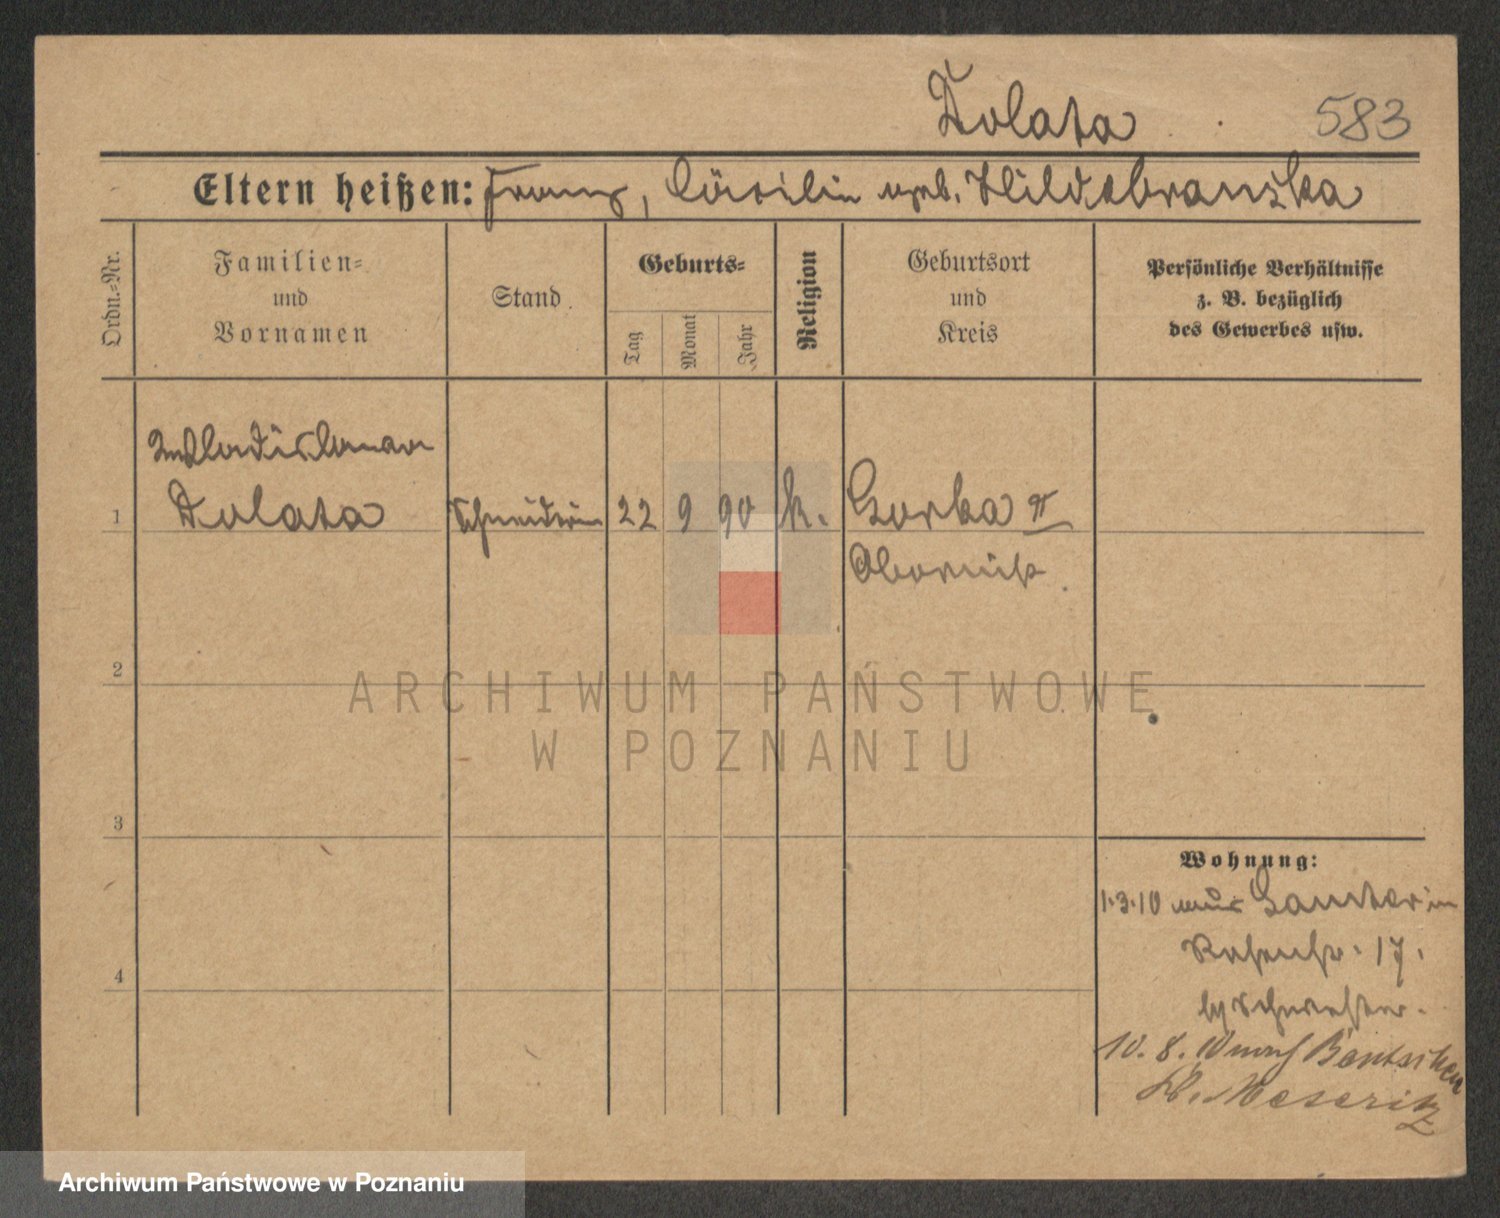 Dolata 583
Eltern heißen: Franz, Cäcilie geb. Hildebranska
Ordn.-Nr.
Familien-
und
Vornamen
Stand
Geburts-
Tag
Monat
Jahr
Religion
Geburtsort
und
Kreis
Persönliche Verhältnisse
z. B. bezüglich
des Gewerbes usw.
Wladislawa
1 Dolata Schneiderin 22 9 90 k. Gorka II
Obornik
2
ARCHIWUM PAŃSTWOWE
W POZNANIU
3
Wohnung:
1.3.10 aus Samter in
Rosenstr. 17.
b/ Schwester.
10. 8. 10 nach Bentschen
Kr. Meseritz
4
Archiwum Państwowe w Poznaniu